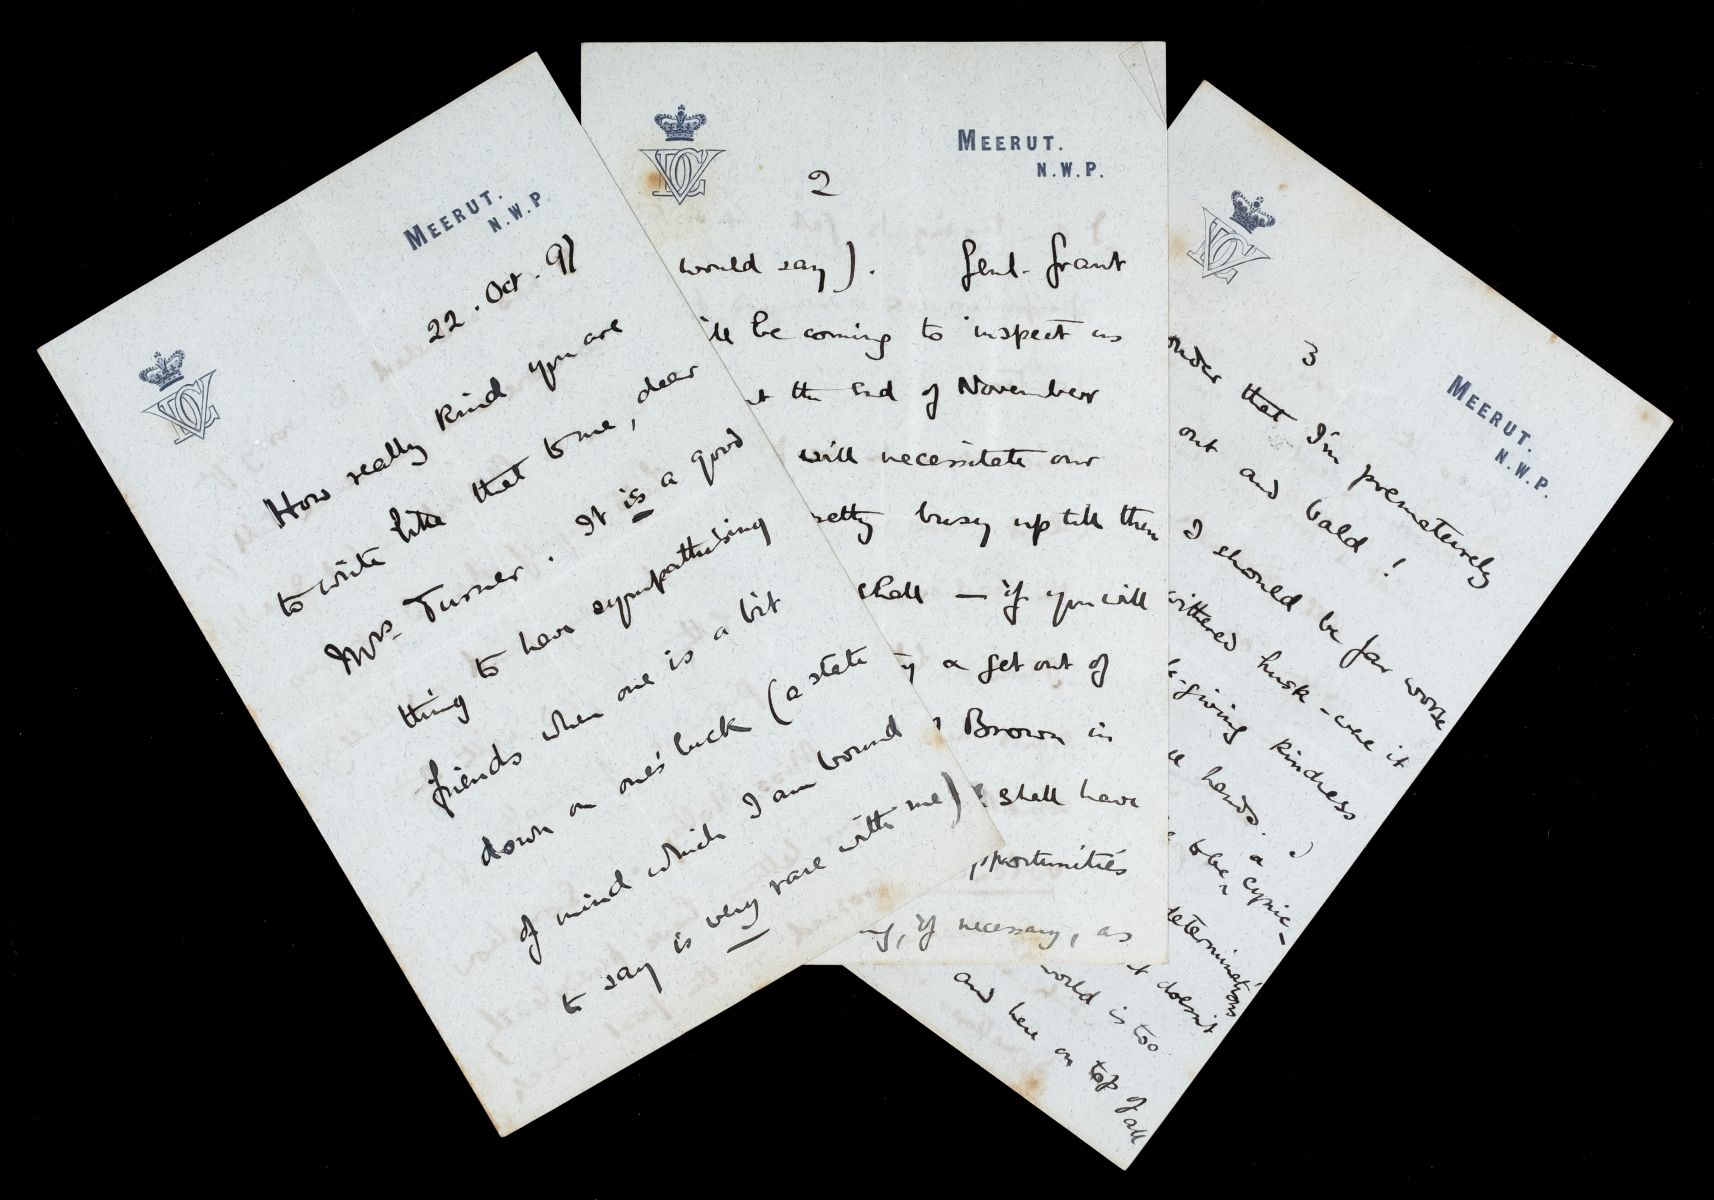 MEERUT.
N.W.P.
22. Oct. 97
How really kind you are
to write like that to me, dear
Mrs Turner. It is a good
thing to have sympathising
friends when one is a bit
down on one's luck (a state
of mind which I am bound
to say is very rare with me)
MEERUT.
N.W.P.
2
would say). Genl. Grant
'll be coming to inspect us
at the End of November
will necessitate our
retty busy up till then
shall — if you will
y a get out of
Brown in
shall have
pportunities
if necessary, as
MEERUT.
N.W.P.
3
onder that I'm prematurely
out and bald!
I should be far worse
withered husk - were it
-giving kindness
hands. I
to be a cynic -
determinations
t doesn't
world is too
and here on top of all